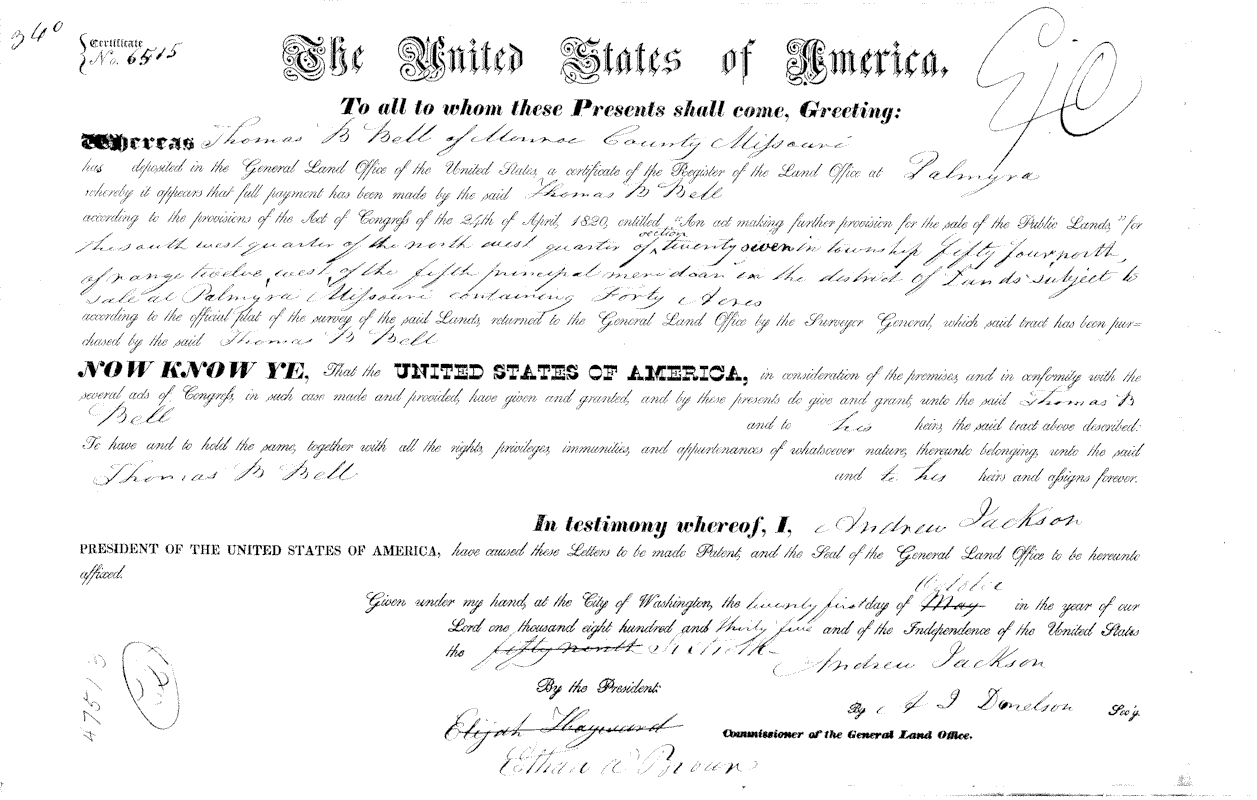 340
Certificate
No. 6515
The United States of America,
To all to whom these Presents shall come, Greeting:
Whereas Thomas B Bell of Monroe County Missouri
has deposited in the General Land Office of the United States, a certificate of the Register of the Land Office at Palmyra
whereby it appears that full payment has been made by the said Thomas B Bell
according to the provisions of the Act of Congress of the 24th of April, 1820, entitled "An act making further provision for the sale of the Public Lands," for
the south west quarter of the north west quarter of section twenty seven in township fifty four north,
of range twelve, west, of the fifth principal meridian in the district of Lands subject to
sale at Palmyra Missouri containing Forty Acres
according to the official plat of the survey of the said Lands, returned to the General Land Office by the Surveyor General, which said tract has been pur=
chased by the said Thomas B Bell
NOW KNOW YE, That the UNITED STATES OF AMERICA, in consideration of the premises, and in conformity with the
several acts of Congress, in such case made and provided, have given and granted, and by these presents do give and grant, unto the said Thomas B
Bell and to his heirs, the said tract above described:
To have and to hold the same, together with all the rights, privileges, immunities, and appurtenances of whatsoever nature, thereunto belonging, unto the said
Thomas B Bell and to his heirs and assigns forever.
In testimony whereof, I, Andrew Jackson
PRESIDENT OF THE UNITED STATES OF AMERICA, have caused these Letters to be made Patent, and the Seal of the General Land Office to be hereunto
affixed.
October
Given under my hand, at the City of Washington, the twenty first day of May in the year of our
Lord one thousand eight hundred and thirty five and of the Independence of the United States
the fifty ninth Sixtieth
Andrew Jackson
By the President:
By A J Donelson Sec'y.
Elijah Hayward
Commissioner of the General Land Office.
Ethan A Brown
47513